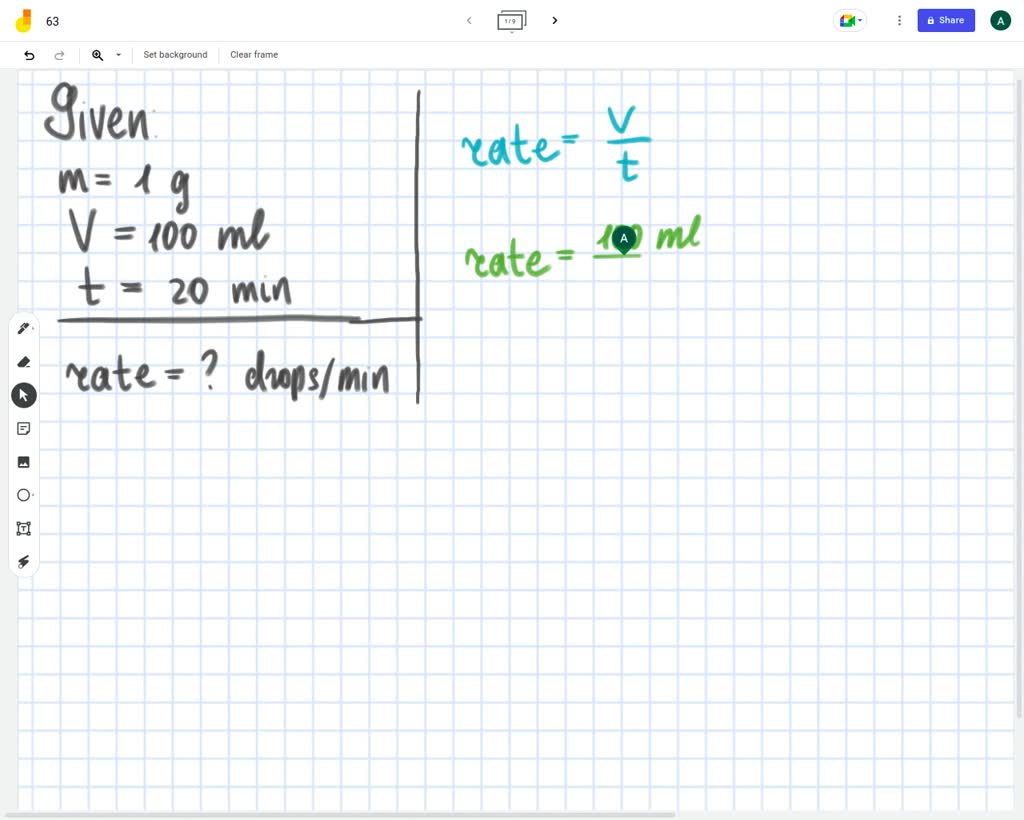 63
1 / 9
Share
A
Set background
Clear frame
Given:
m = 1 g
V = 100 ml
t = 20 min
rate = ? drops/min
rate = V
t
rate = 100 ml
A